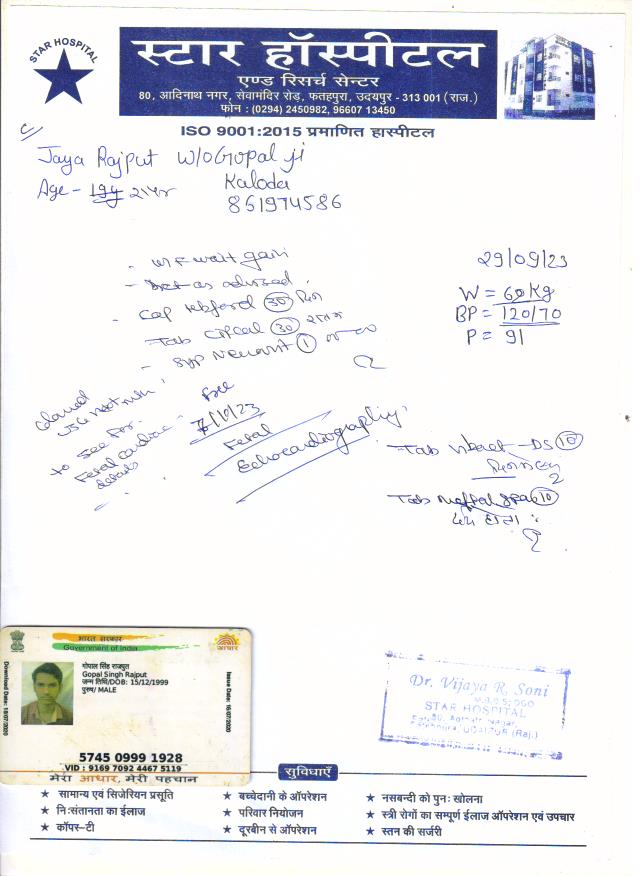 STAR HOSPITAL
स्टार हॉस्पीटल
एण्ड रिसर्च सेन्टर
80, आदिनाथ नगर, सेवामंदिर रोड़, फतहपुरा, उदयपुर - 313 001 (राज.)
फोन : (0294) 2450982, 96607 13450
ISO 9001:2015 प्रमाणित हास्पीटल
Jaya Rajput W/o Gopal ji
Kaloda
Age -
861974586
29/09/23
W = 60 Kg
BP = 120/70
P = 91
- as advised.
- Cap 30 दिन
- Tab 30
- Syp 1
to see for
Fetal cardiac
details
7/10/23
Fetal
Echocardiography
Tab -DS 10
Tab 10
भारत सरकार
Government of India
आधार
Download Date: 18/07/2020
गोपाल सिंह राजपूत
Gopal Singh Rajput
जन्म तिथि/DOB: 15/12/1999
पुरुष/ MALE
Issue Date: 16/07/2020
5745 0999 1928
VID : 9169 7092 4467 5119
मेरा आधार, मेरी पहचान
Dr. Vijaya R. Soni
STAR HOSPITAL
सुविधाएँ
★ सामान्य एवं सिजेरियन प्रसूति
★ बच्चेदानी के ऑपरेशन
★ नसबन्दी को पुनः खोलना
★ निःसंतानता का ईलाज
★ परिवार नियोजन
★ स्त्री रोगों का सम्पूर्ण ईलाज ऑपरेशन एवं उपचार
★ कॉपर-टी
★ दूरबीन से ऑपरेशन
★ स्तन की सर्जरी